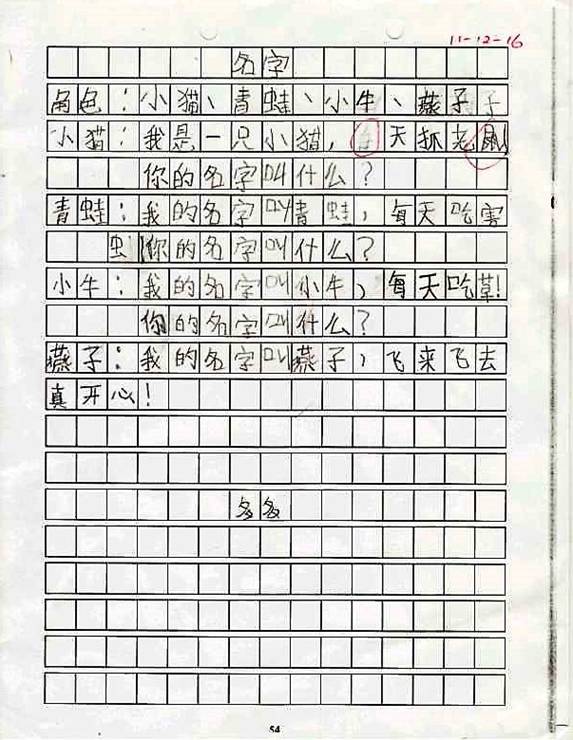 11-12-16
名字
角色：小猫、青蛙、小牛、燕子
小猫：我是一只小猫，每天抓老鼠！
你的名字叫什么？
青蛙：我的名字叫青蛙，每天吃害
虫！你的名字叫什么？
小牛：我的名字叫小牛，每天吃草！
你的名字叫什么？
燕子：我的名字叫燕子，飞来飞去
真开心！
多多
54